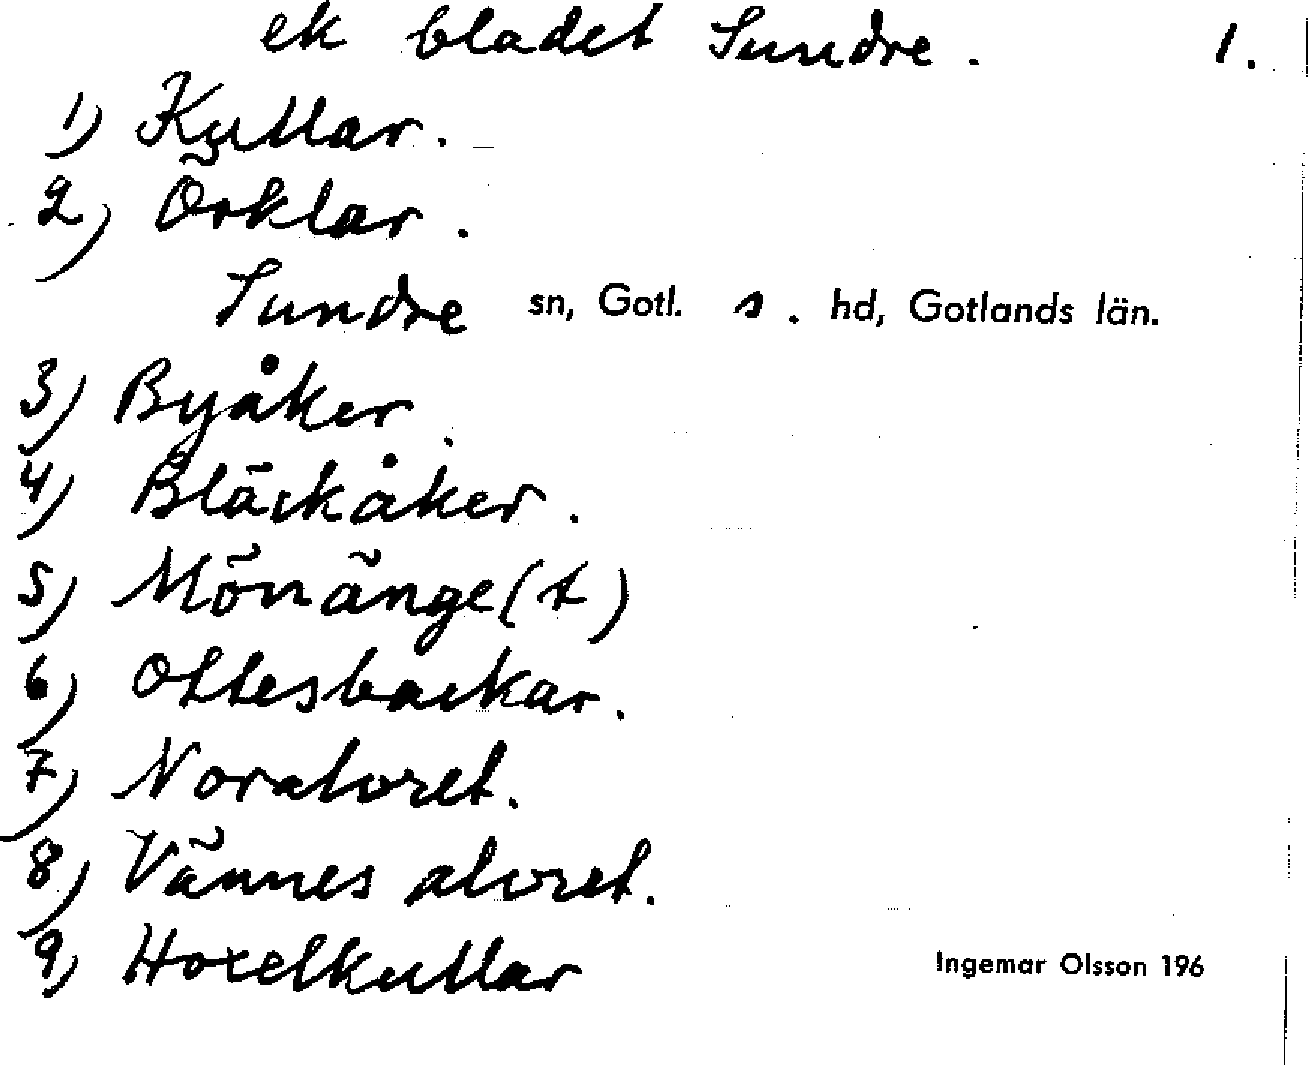 ek bladet Sundre. 1.
1) Kullar.
2) Örklar.
Sundre sn, Gotl. s. hd, Gotlands län.
3) Byåker.
4) Bläckåker.
5) Mönänge(t)
6) Ottesbackar.
7) Noralvret.
8) Vännes alvret.
9) Hoxelkullar
Ingemar Olsson 196